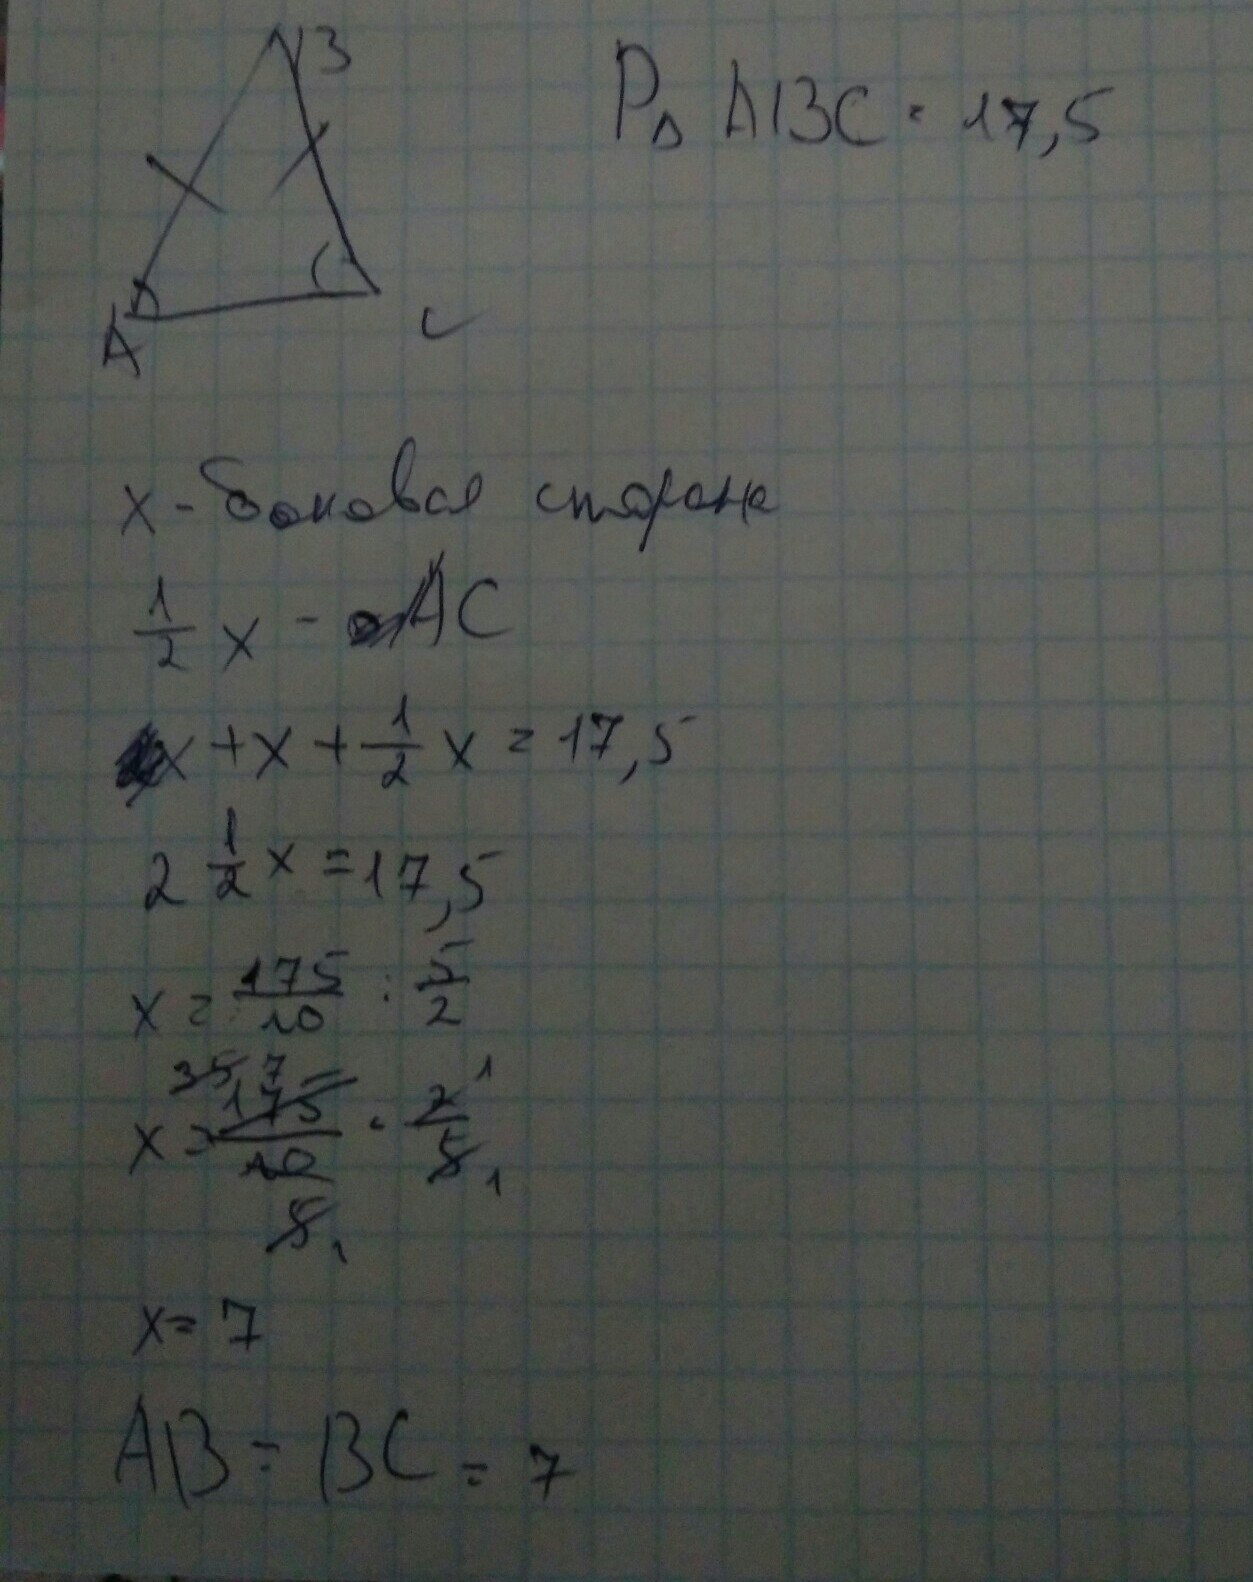 B
P△ ABC = 17,5
A
C
x - боковая сторона
1/2 x - AC
x + x + 1/2 x = 17,5
2 1/2 x = 17,5
x = 175/10 : 5/2
35 7 1
x = 175/10 · 2/5
1
5 1
x = 7
AB = BC = 7